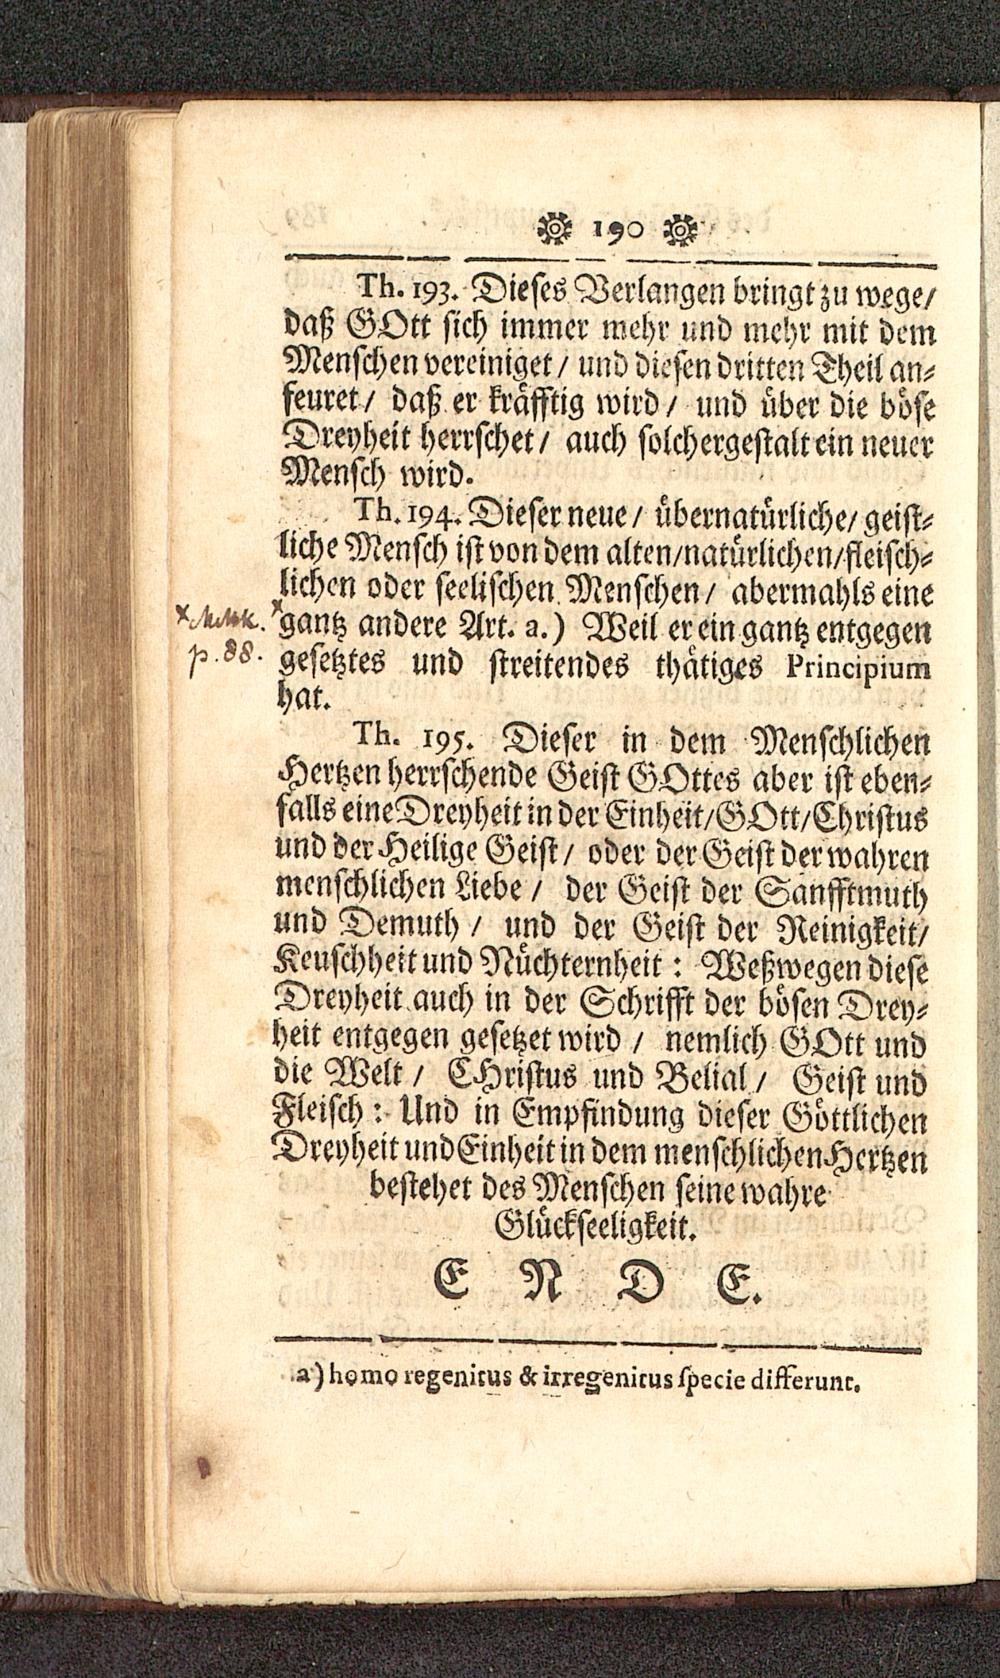 190
Th. 193. Dieses Verlangen bringt zu wege/
daß GOtt sich immer mehr und mehr mit dem
Menschen vereiniget / und diesen dritten Theil an-
feuret / daß er kräfftig wird / und über die böse
Dreyheit herrschet / auch solchergestalt ein neuer
Mensch wird.
Th. 194. Dieser neue / übernatürliche / geist-
liche Mensch ist von dem alten/natürlichen/fleisch-
lichen oder seelischen Menschen / abermahls eine
gantz andere Art. a.) Weil er ein gantz entgegen
p. 88.
gesetztes und streitendes thätiges Principium
hat.
Th. 195. Dieser in dem Menschlichen
Hertzen herrschende Geist GOttes aber ist eben-
falls eine Dreyheit in der Einheit/GOtt/Christus
und der Heilige Geist / oder der Geist der wahren
menschlichen Liebe / der Geist der Sanfftmuth
und Demuth / und der Geist der Reinigkeit/
Keuschheit und Nüchternheit : Weßwegen diese
Dreyheit auch in der Schrifft der bösen Drey-
heit entgegen gesetzet wird / nemlich GOtt und
die Welt / CHristus und Belial / Geist und
Fleisch : Und in Empfindung dieser Göttlichen
Dreyheit und Einheit in dem menschlichen Hertzen
bestehet des Menschen seine wahre
Glückseeligkeit.
E N D E.
a) homo regenitus & irregenitus specie differunt.